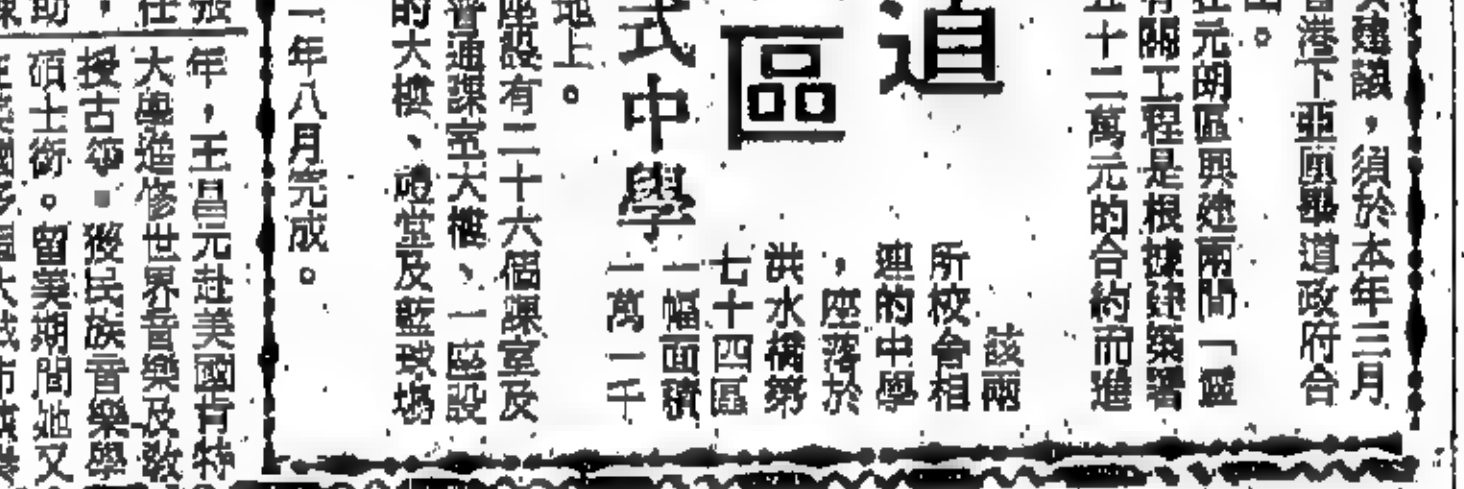 建議，須於本年三月
香港下亞厘畢道政府合
。
元朗區興建兩間「藍
有關工程是根據建築署
五十二萬元的合約而進
道
區
式中學
該兩
所校舍相
連的中學
，座落於
洪水橋第
七十四區
一幅面積
一萬一千
地上。
座設有二十六個課室及
普通課室大樓、一座設
的大樓、禮堂及籃球場
一年八月完成。
年，王昌元赴美國肯特
大學進修世界音樂及教
授古箏。獲民族音樂學
碩士銜。留美期間她又